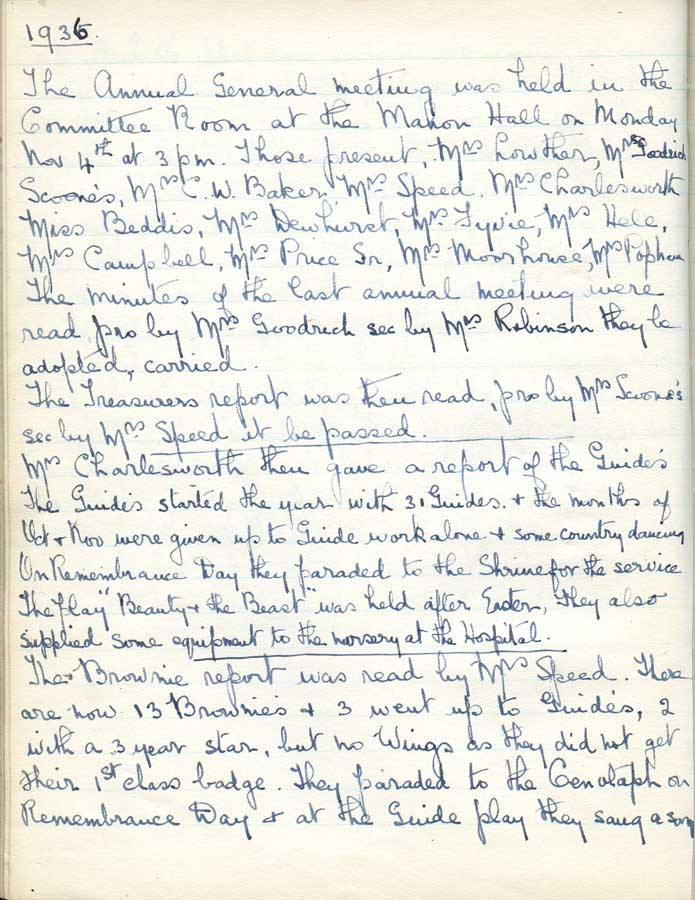 1936.
The Annual General meeting was held in the
Committee Room at the Mahon Hall on Monday
Nov 4th at 3 pm. Those present, Mrs Lowther, Mrs Goodrich
Scoones, Mrs C. W. Baker, Mrs Speed. Mrs Charlesworth
Miss Beddis, Mrs Dewhurst, Mrs Fyvie, Mrs Hele,
Mrs Campbell, Mrs Price Sr, Mrs Moorhouse, Mrs Popham
The minutes of the last annual meeting were
read, pro by Mrs Goodrich sec by Mrs Robinson they be
adopted, carried.
The Treasurers report was then read, pro by Mrs Scoones
sec by Mrs Speed it be passed.
Mrs Charlesworth then gave a report of the Guides
The Guides started the year with 31 Guides. & the months of
Oct & Nov were given up to Guide work alone & some country dancing
On Remembrance Day they paraded to the Shrine for the service
The play "Beauty & the Beast" was held after Easter, They also
supplied some equipment to the nursery at the Hospital.
The Brownie report was read by Mrs Speed. There
are now 13 Brownies & 3 went up to Guides, 2
with a 3 year star, but no Wings as they did not get
their 1st class badge. They paraded to the Cenotaph on
Remembrance Day & at the Guide play they sang a song